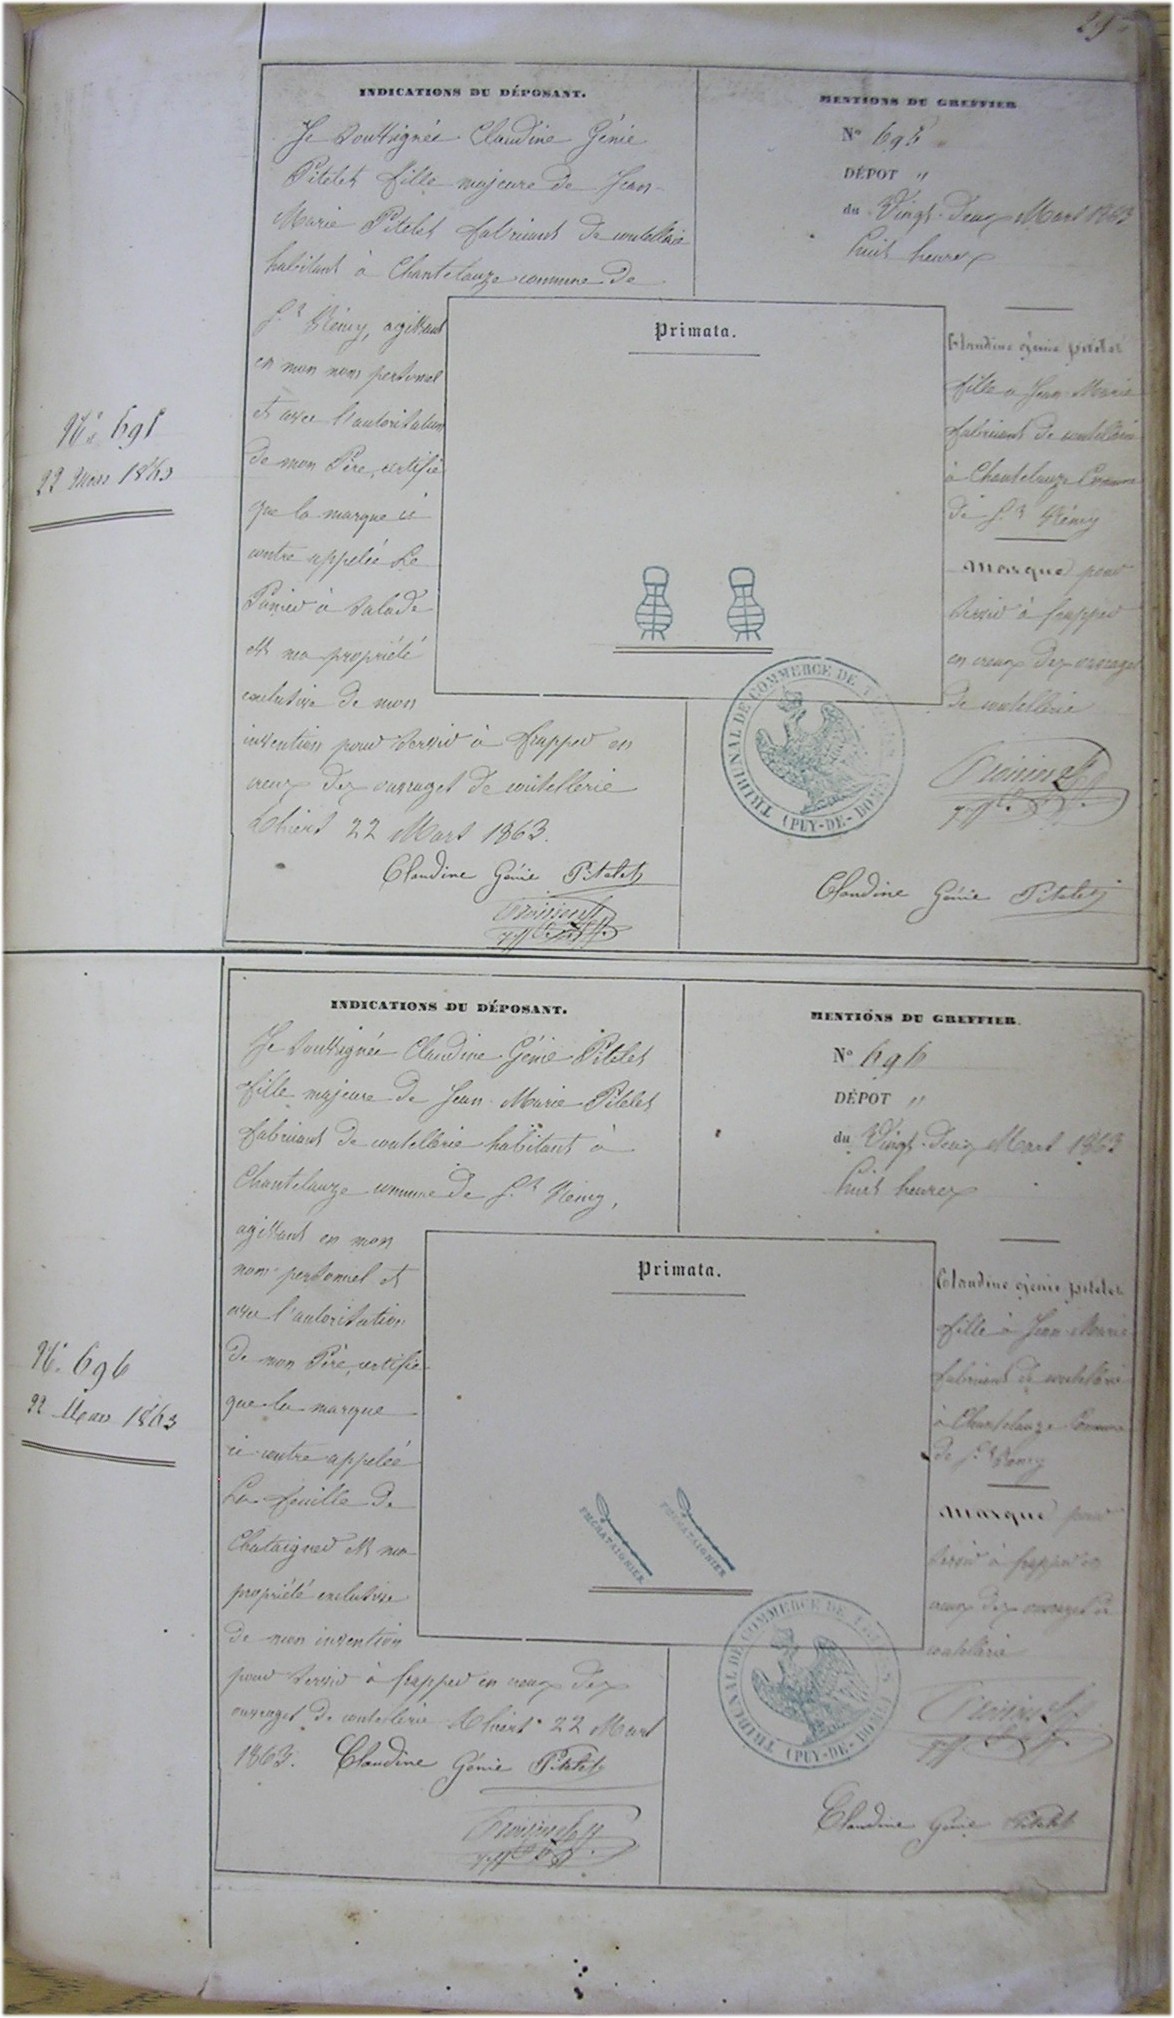 INDICATIONS DU DÉPOSANT.
Je soussignée Claudine Génie
Pitelet fille majeure de Jean-
Marie Pitelet fabricant de coutellerie
habitant à Chantelauze commune de
St Rémy, agissant
en mon nom personel
et avec l'autorisation
de mon Père, certifie
que la marque ci
contre appelée Le
Panier à Salade
est ma propriété
exclusive de mon
invention pour servir à frapper en
creux des ouvrages de coutellerie
Thiers 22 Mars 1863.
Claudine Génie Pitelet
MENTIONS DU GREFFIER
N° 695
DÉPOT "
du Vingt-deux Mars 1863
huit heures
Primata.
Claudine génie pitelet
fille à Jean Marie
fabricant de coutellerie
à Chantelauze Commune
de St Rémy
Marque pour
servir à frapper
en creux des ouvrages
de coutellerie
TRIBUNAL DE COMMERCE DE THIERS
(PUY-DE-DOME)
Claudine Génie Pitelet
N° 695
22 Mars 1863
INDICATIONS DU DÉPOSANT.
Je soussignée Claudine Génie Pitelet
fille majeure de Jean Marie Pitelet
fabricant de coutellerie habitant à
Chantelauze commune de St Rémy,
agissant en mon
nom personnel et
avec l'autorisation
de mon Père, certifie
que la marque
ci contre appelée
La feuille de
Chataigner est ma
propriété exclusive
de mon invention
pour servir à frapper en creux des
ouvrages de coutellerie Thiers 22 Mars
1863. Claudine Génie Pitelet
MENTIONS DU GREFFIER
N° 696
DÉPOT "
du Vingt-deux Mars 1863
huit heures
Primata.
CHATAIGNIER
CHATAIGNIER
Claudine génie pitelet
fille à Jean Marie
fabricant de coutellerie
à Chantelauze Commune
de St Remy
Marque pour
servir à frapper en
creux des ouvrages de
coutellerie
TRIBUNAL DE COMMERCE DE THIERS
(PUY-DE-DOME)
Claudine Génie Pitelet
N° 696
22 Mars 1863